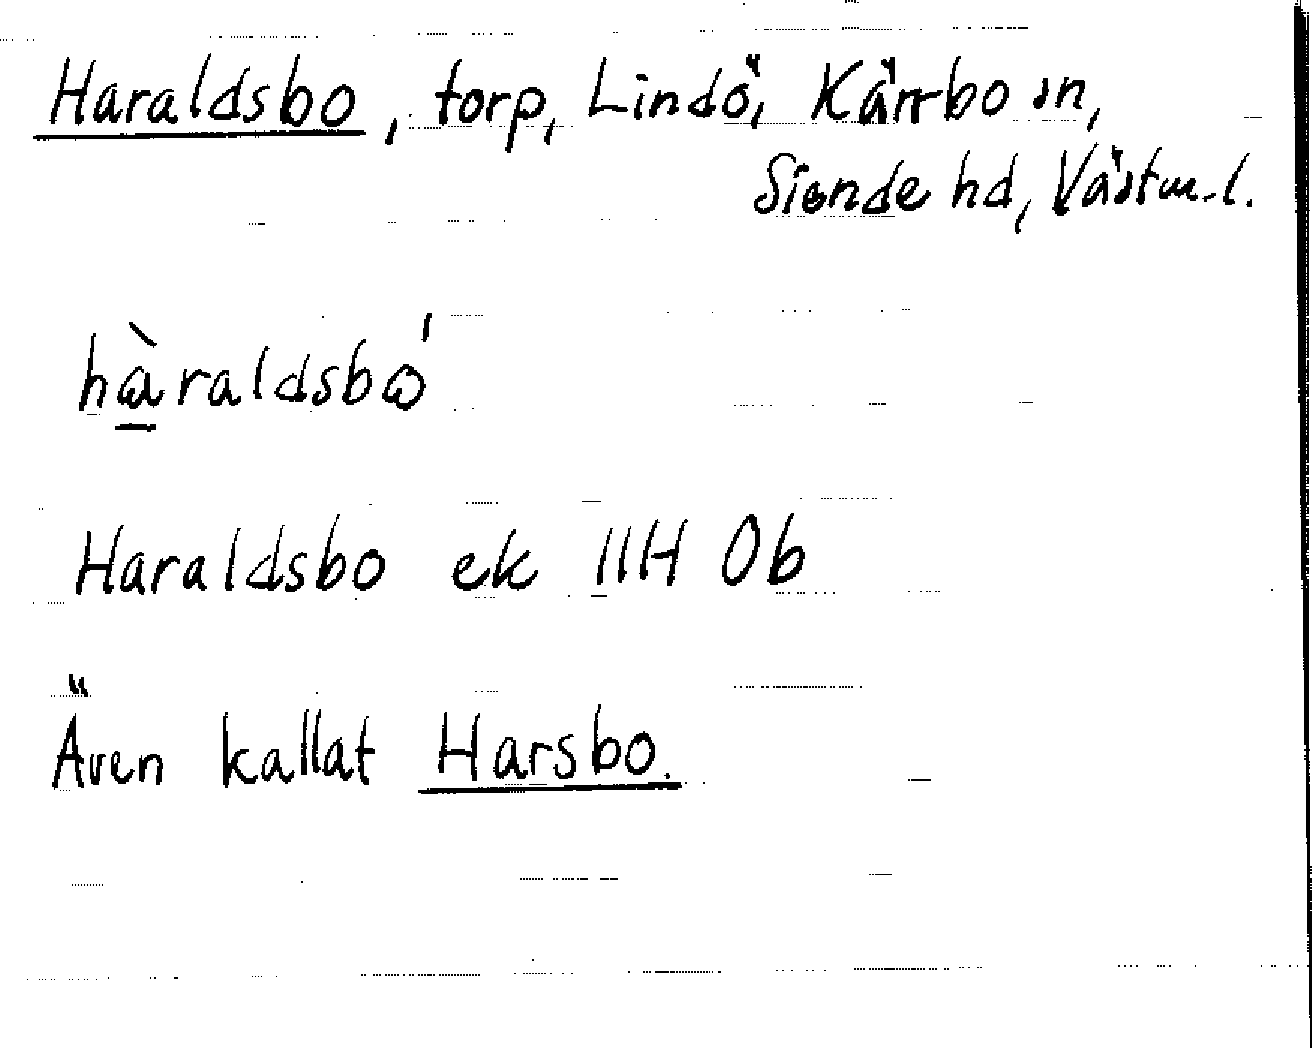 Haraldsbo, torp, Lindö, Kärrbo sn,
Siende hd, Västm. l.
hàraldsbo´
Haraldsbo ek 11H Ob
Även kallat Harsbo.